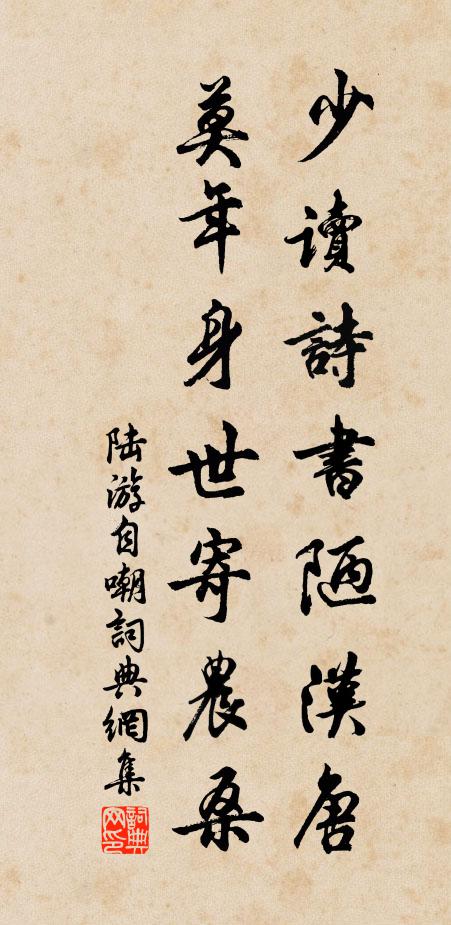 少讀詩書陋漢唐
莫年身世寄農桑
陆游自嘲詞典網集
詞典网印